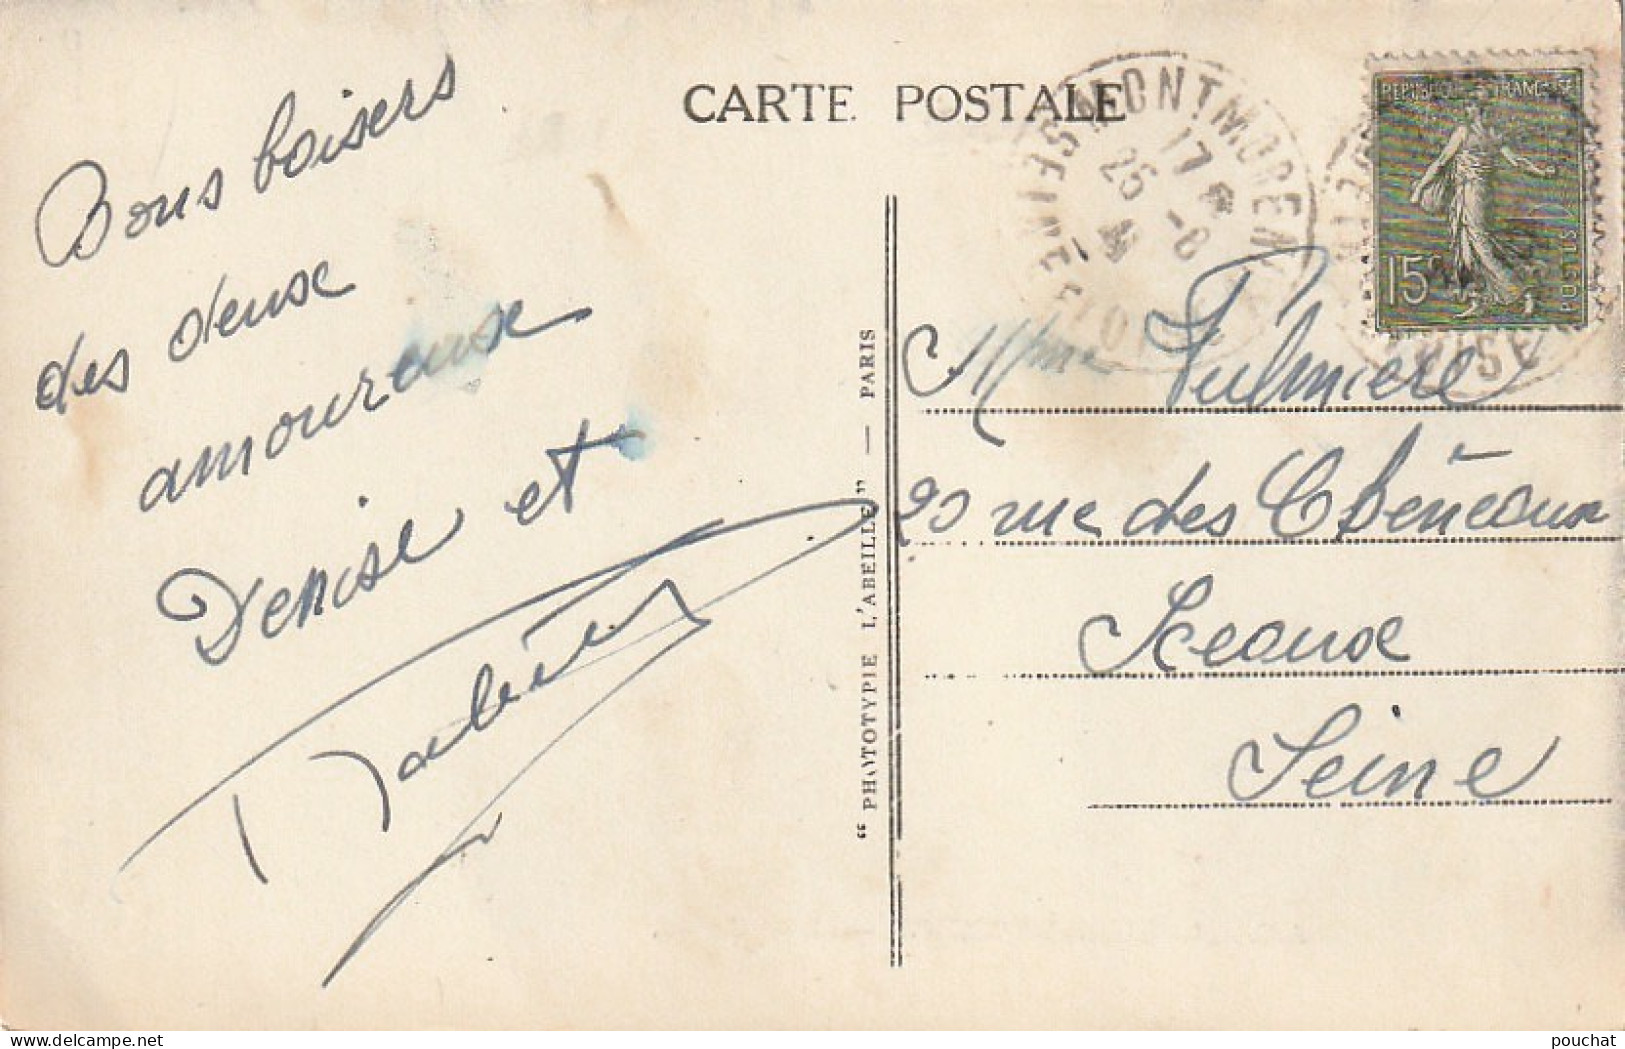 CARTE POSTALE
Bons baisers
des deux
amoureuse
Denise et
"PHOTOTYPIE L'ABEILLE" — PARIS
MONTMORENCY
SEINE-ET-OISE
17
25 -8
REPUBLIQUE FRANÇAISE
15c
POSTES
OISE
Mme Fulmiere
20 rue des Chéneaux
Sceaux
Seine
pouchat